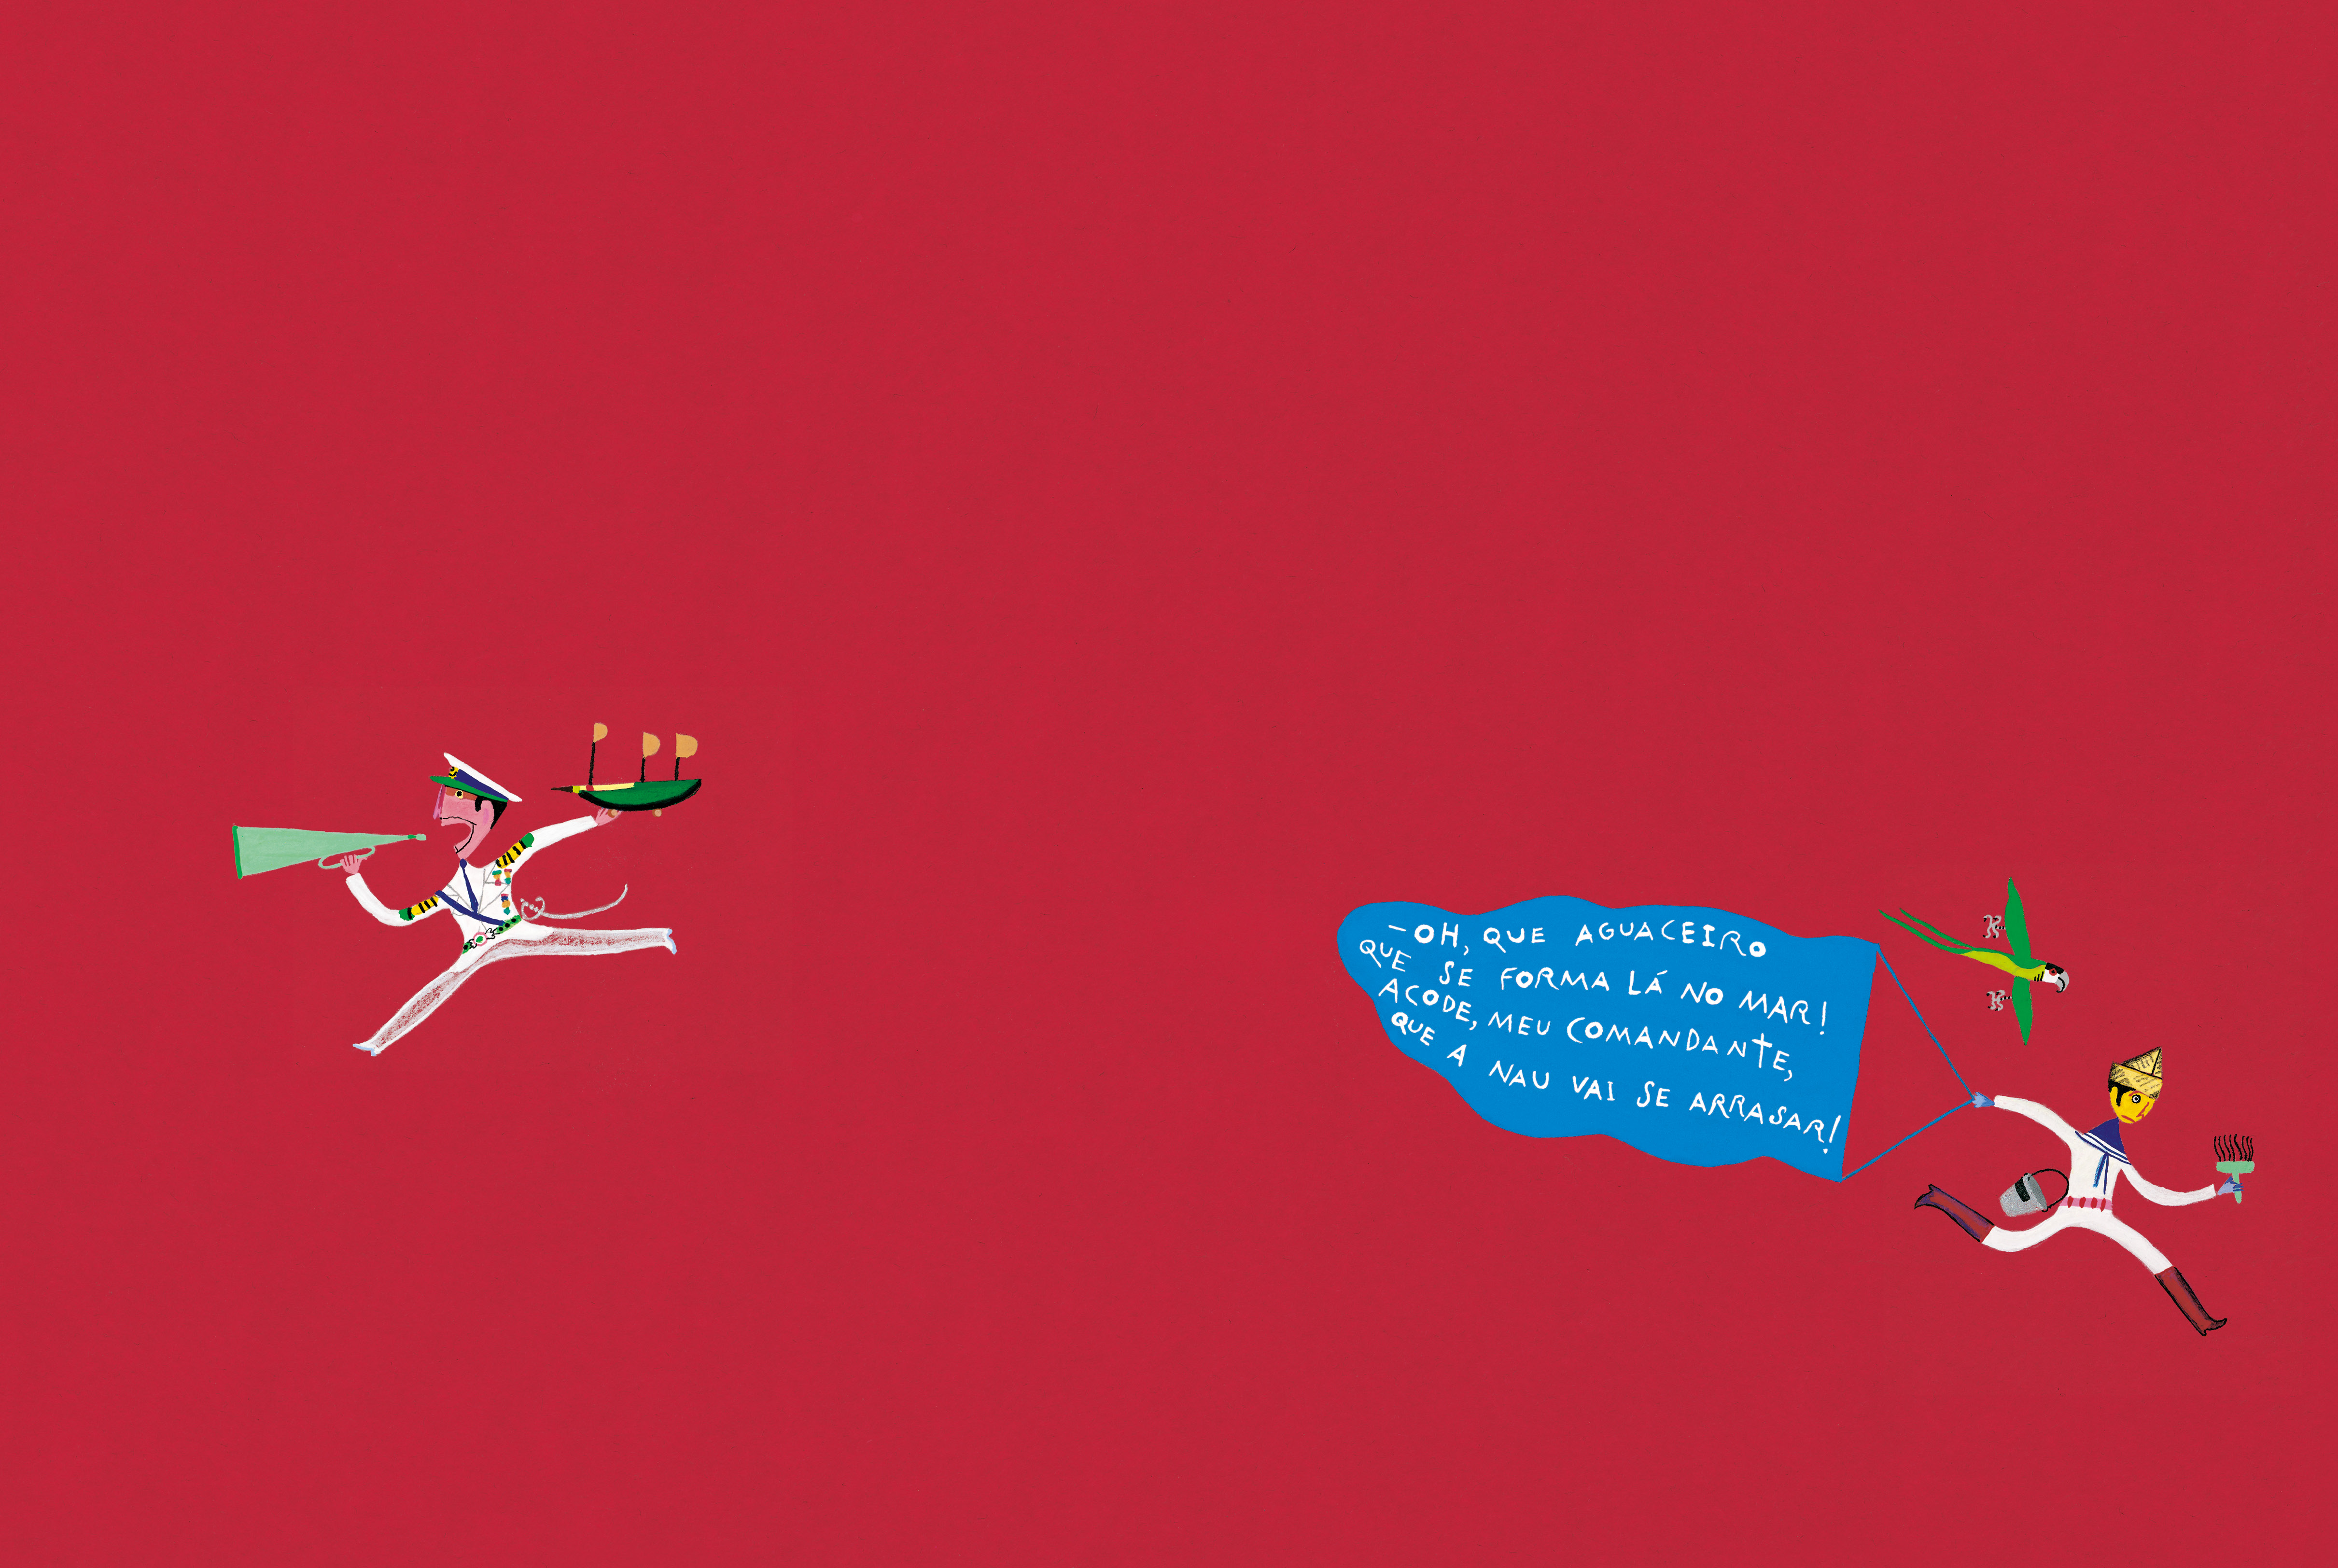 –OH, QUE AGUACEIRO
QUE SE FORMA LÁ NO MAR!
ACODE, MEU COMANDANTE,
QUE A NAU VAI SE ARRASAR!